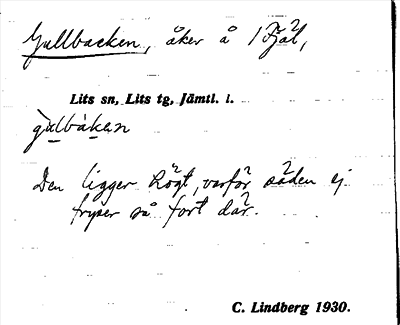 Gullbacken, åker å 1 Fjäl,
Lits sn, Lits tg, Jämtl. l.
gulbàkan
Den ligger högt, varför säden ej
fryser så fort där.
C. Lindberg 1930.